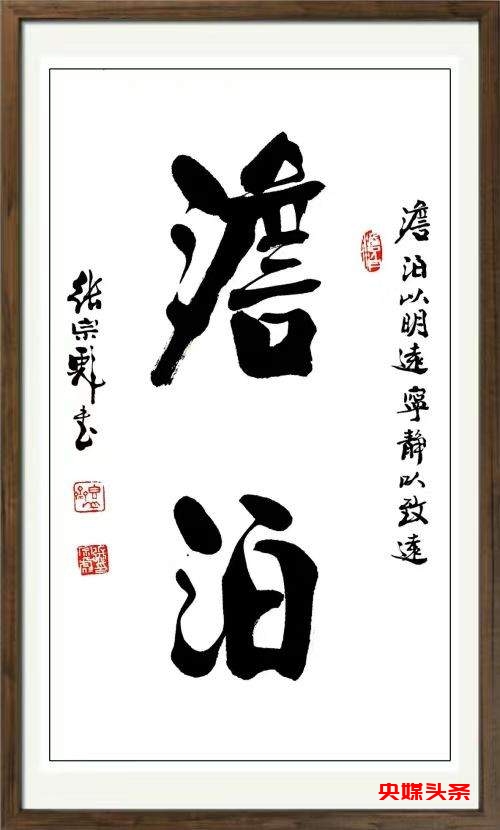 澹泊以明遠寧靜以致遠
澹泊
张宗彪书
央媒头条